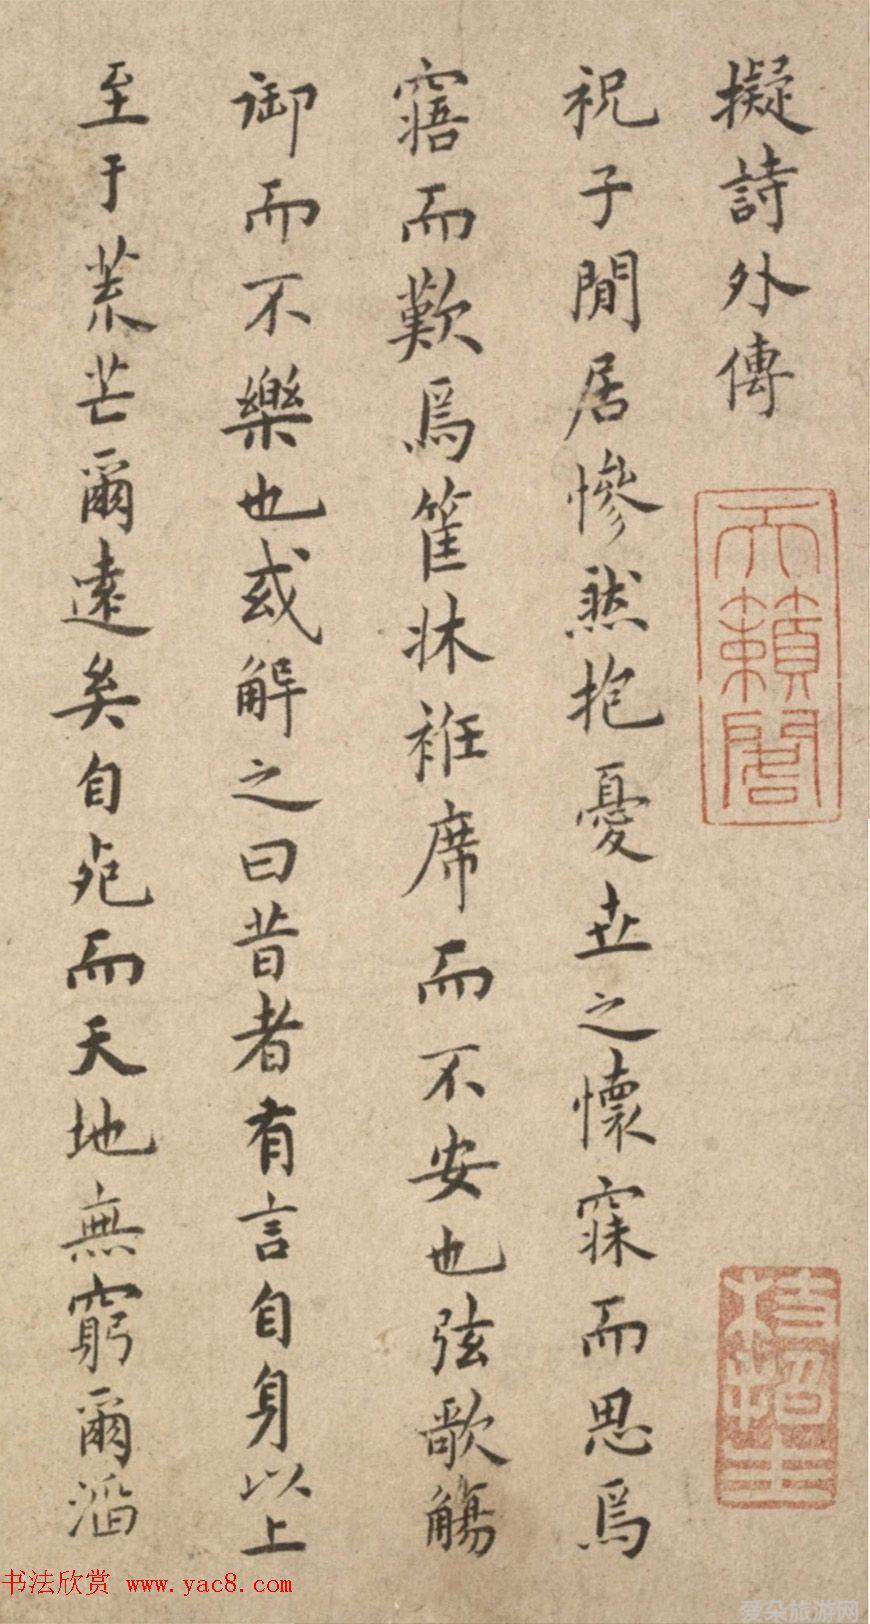 擬詩外傳
祝子閒居慘然抱憂世之懷寐而思焉
寤而歎焉筐牀袵席而不安也弦歌觴
御而不樂也或解之曰昔者有言自身以上
至于荒芒爾遠矣自死而天地無窮爾滔
天籟閣
枝指生
书法欣赏 www.yac8.com
爱朵旅游网